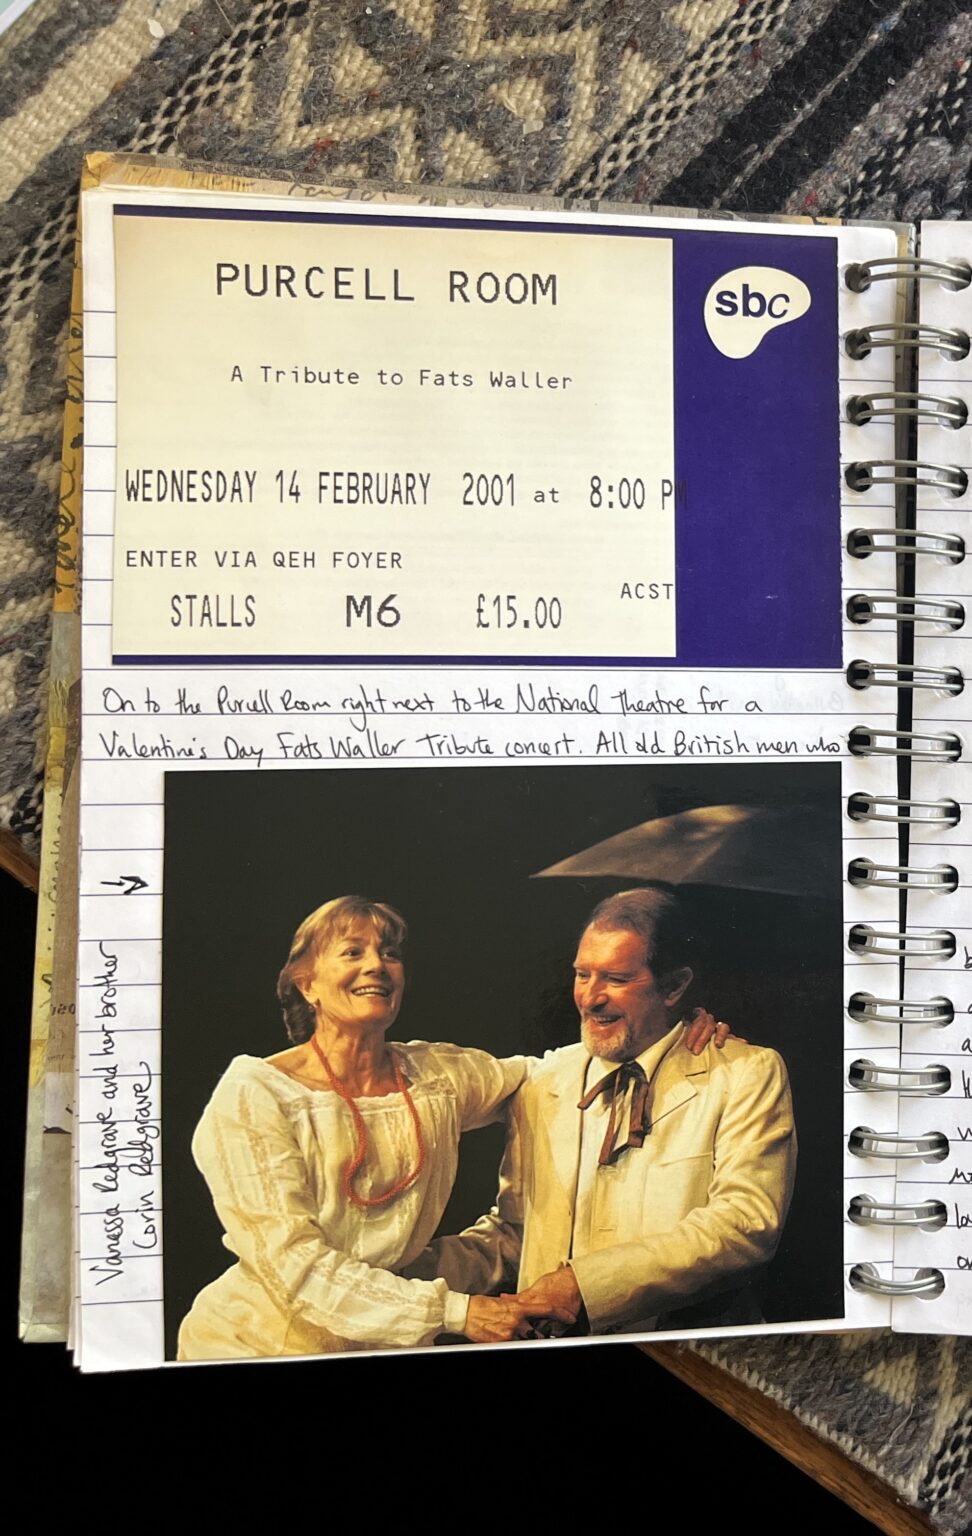 PURCELL ROOM
sbc
A Tribute to Fats Waller
WEDNESDAY 14 FEBRUARY 2001 at 8:00 PM
ENTER VIA QEH FOYER
ACST
STALLS M6 £15.00
On to the Purcell Room right next to the National Theatre for a
Valentine's Day Fats Waller Tribute concert. All old British men who
Vanessa Redgrave and her brother
Corin Redgrave